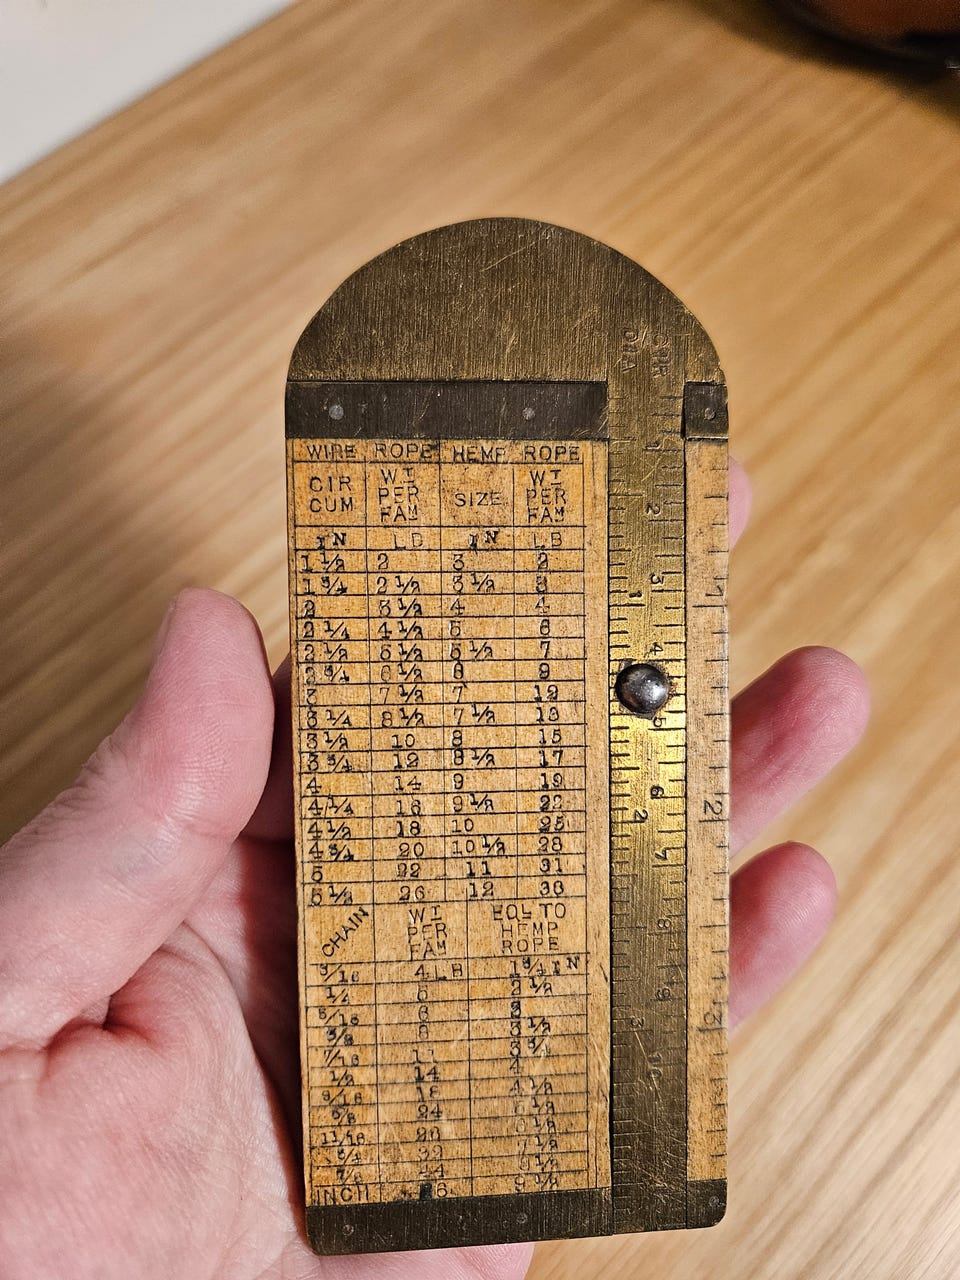 DIA
CIR
WIRE ROPE HEMP ROPE
CIR CUM WT PER FAM SIZE WT PER FAM
IN LB IN LB
1 1/2 2 3 2
1 3/4 2 1/2 3 1/2 3
2 3 1/2 4 4
2 1/4 4 1/2 5 6
2 1/2 5 1/2 5 1/2 7
2 3/4 6 1/2 6 9
3 7 1/2 7 12
3 1/4 8 1/2 7 1/2 13
3 1/2 10 8 15
3 3/4 12 8 1/2 17
4 14 9 19
4 1/4 16 9 1/2 22
4 1/2 18 10 25
4 3/4 20 10 1/2 28
5 22 11 31
5 1/2 26 12 36
CHAIN WT PER FAM EQL TO HEMP ROPE
3/16 4 LB 1 3/4 IN
1/4 5 2 1/2
5/16 6
3/8 8 3 1/2
7/16 11 3 3/4
1/2 14 4
9/16 18 4 1/2
5/8 24 1/2
11/16 1/2
3/4 32 7 1/2
7/8 8 1/2
INCH 9 1/2
1 2 3 4 5 6 7 8 9 10 11
1 2 3
1 2 3